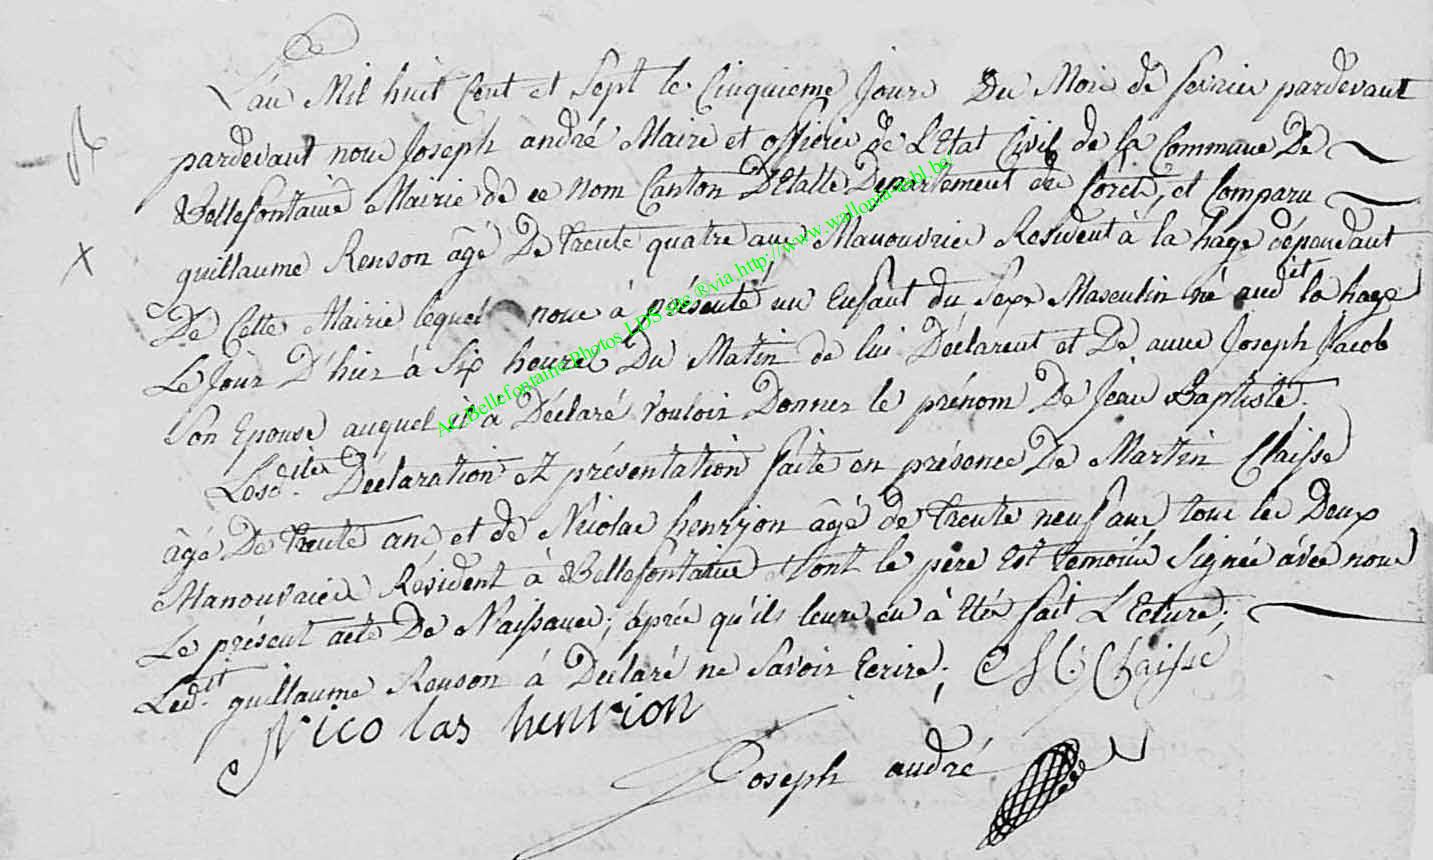 L'an Mil huit Cent et Sept le Cinquieme Jours Du Mois de fevrier pardevant
pardevant nous Joseph andré Maire et officier de L'Etat Civil de la Commune De
Bellefontaine Mairie de ce nom Canton D'Etalle Departement des forets, et Comparu
guillaume Renson âgé De trente quatre ans Manouvrier Resident à la hage dépendant
De Cette Mairie lequel nous à présenté un Enfant du Sexe Masculin né audit la hage
Le Jour D'hier à Six heures Du Matin de lui Déclarent et De anne Joseph Jacob
Son Epouse auquel il à Déclaré Vouloir Donner le prenom De Jean Baptiste.
Lesd.ites Déclaration et présentation faite en présence De Martin Claisse
âgé De trente ans et de Nicolas henryon âgé de trente neuf ans tous les Deux
Manouvriers Résident à Bellefontaine dont le père Est temoins Signée avec nous
Le présent acte De Naissance; après qu'ils leurs en à Etés fait LEcture;
Led.it guillaume Renson à Declaré ne Savoir Ecrire. M: Claisse
Nicolas henrion
Joseph andré
AC Bellefontaine Photos LDS ®via http://www.wallonia-asbl.be